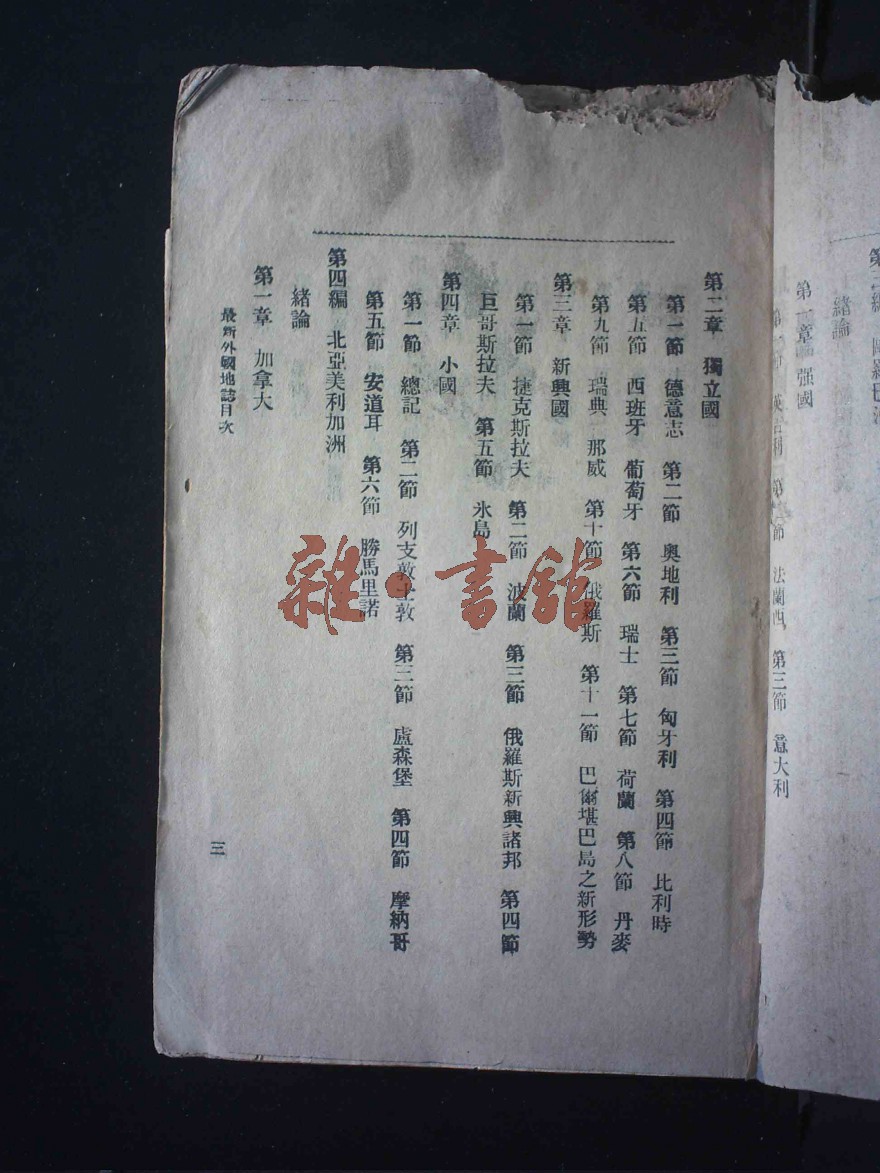 第二章 獨立國
第一節 德意志 第二節 奧地利 第三節 匈牙利 第四節 比利時
第五節 西班牙 葡萄牙 第六節 瑞士 第七節 荷蘭 第八節 丹麥
第九節 瑞典 那威 第十節 俄羅斯 第十一節 巴爾堪巴島之新形勢
第三章 新興國
第一節 捷克斯拉夫 第二節 波蘭 第三節 俄羅斯新興諸邦 第四節
巨哥斯拉夫 第五節 氷島
第四章 小國
第一節 總記 第二節 列支敦士敦 第三節 盧森堡 第四節 摩納哥
第五節 安道耳 第六節 勝馬里諾
第四編 北亞美利加洲
緒論
第一章 加拿大
最新外國地誌目次
三
緒論
强國
法蘭西 第三節 意大利
雜·書館